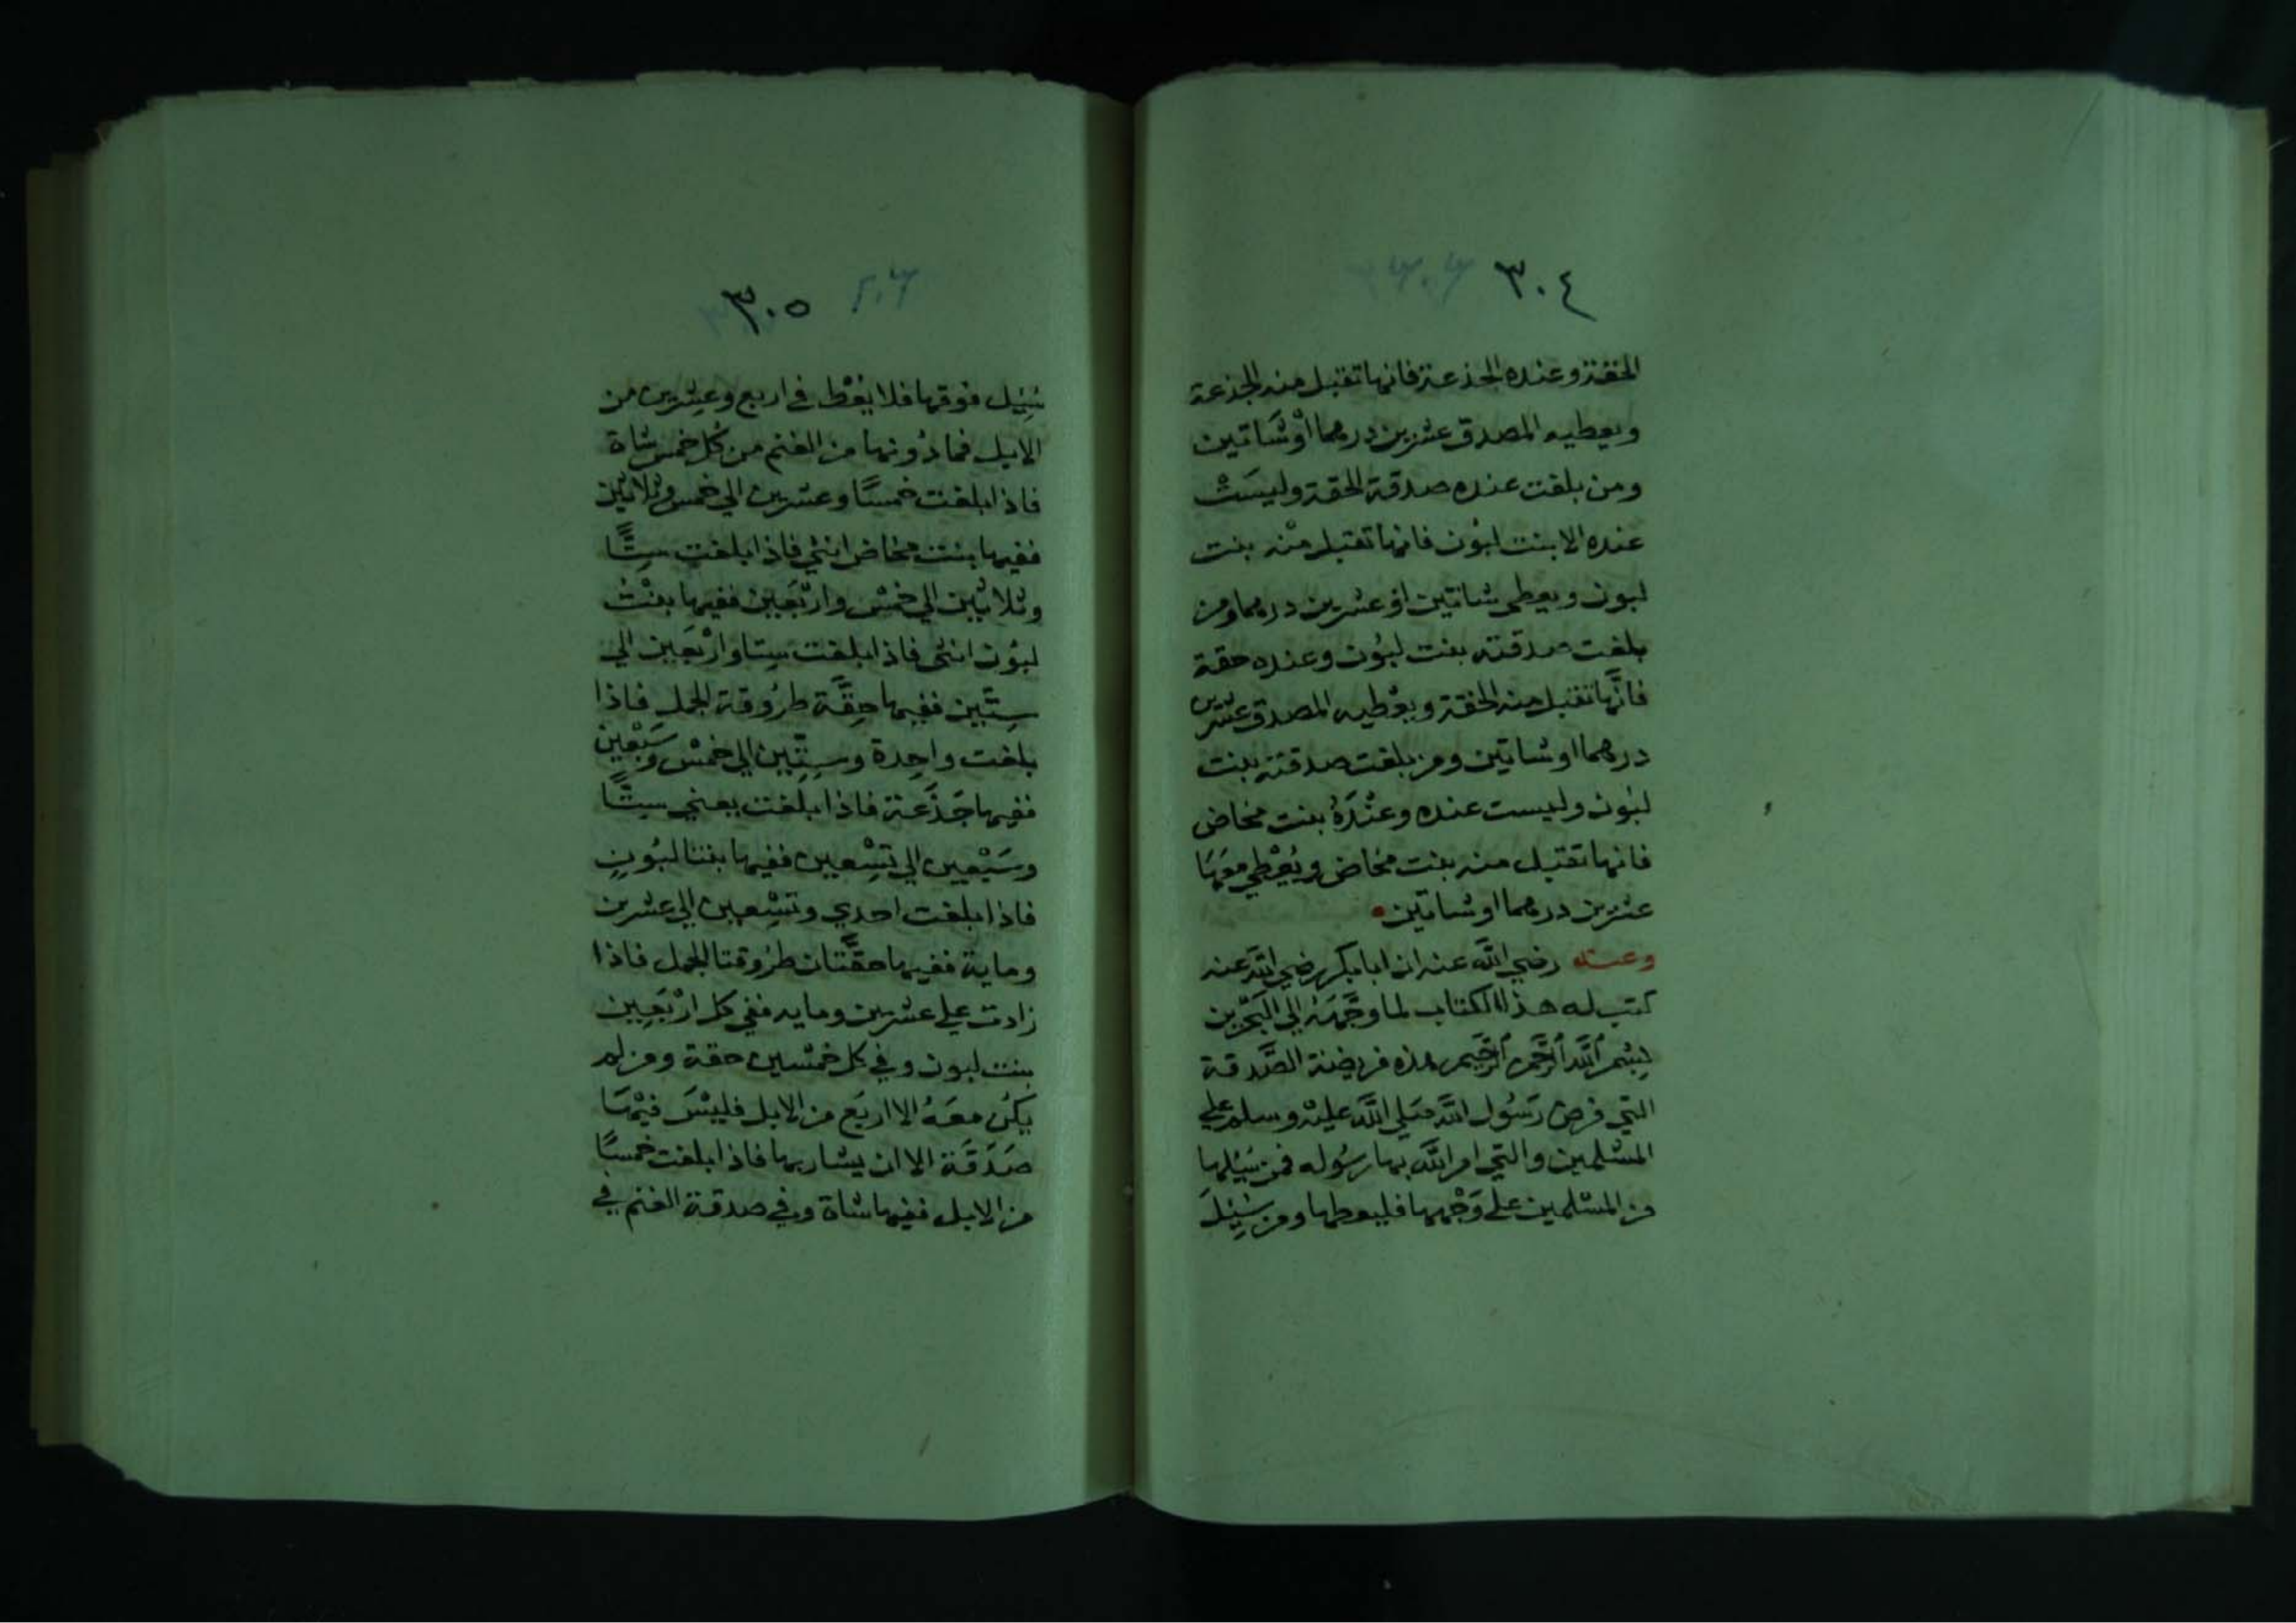 ٣٠٤
الحقة وعنده الجذعة فانها تقبل منه الجذعة
ويعطيه المصدق عشرين درهما اوْ شَاتين
ومن بلغت عنده صدقة الحقة وليسَتْ
عنده الا بنت لبُون فانها تقبل منْه بنت
لبون ويعطى شاتين اوْ عشرين درهما ومن
بلغت صدقته بنت لبُون وعنده حقة
فانَّها تقبل منه الحقة ويعْطيه المصدق عشرين
درهما او شاتين ومن بلغت صدقته بنت
لبُون وليست عنده وعنْدَهُ بنت مخاض
فانها تقبل منه بنت مخاض ويُعْطي معَهَا
عشرين درهما او شاتين
وعنه رضي الله عنه ان ابا بكر رضي الله عنه
كتب له هذا الكتاب لما وَجَّهَهُ الي البَحْرين
بِسْم اللَّه الرَّحْمن الرَّحيم هذه فريضة الصَّدقة
التي فرض رَسُول اللَّه صَلي اللَّه عليْه وسلم علي
المسْلمين والتي امر اللَّه بها رسُوله فمن سُئِلها
من المسْلمين على وَجْهها فليعطها ومن سُئِلَ
٣٠٥
سُئِل فوقها فلا يُعْط في اربع وعِشْرين من
الابل فما دُونها من الغنم من كُل خمس شاة
فاذا بلغت خمسًا وعشرين الي خمس وثلاثين
ففيها بنت مخاض انثي فاذا بلغت سِتًّا
وثلاثين الي خمْس وارْبَعين ففيها بنْتُ
لبُون انثى فاذا بلغت سِتا وارْبَعين الي
سِتّين ففيها حِقَّة طرُوقة الجمل فاذا
بلغت واحِدة وسِتّين الي خمْس وسَبْعين
ففيها جَذَعَة فاذا بلغت يعني سِتًّا
وسَبْعين الي تِسْعين ففيها بنتا لبُونٍ
فاذا بلغت احدي وتسْعين الي عشرين
وماية ففيها حقَّتان طرُوقتا الجمل فاذا
زادت علي عشرين وماية ففي كل ارْبَعين
بنت لبون وفي كل خمْسين حقة ومن لم
يكُن معَهُ الا اربَع من الابل فليْسَ فيْهَا
صَدَقَة الا ان يشا ربها فاذا بلغت خمسًا
من الابل ففيها شاة وفي صدقة الغنم في